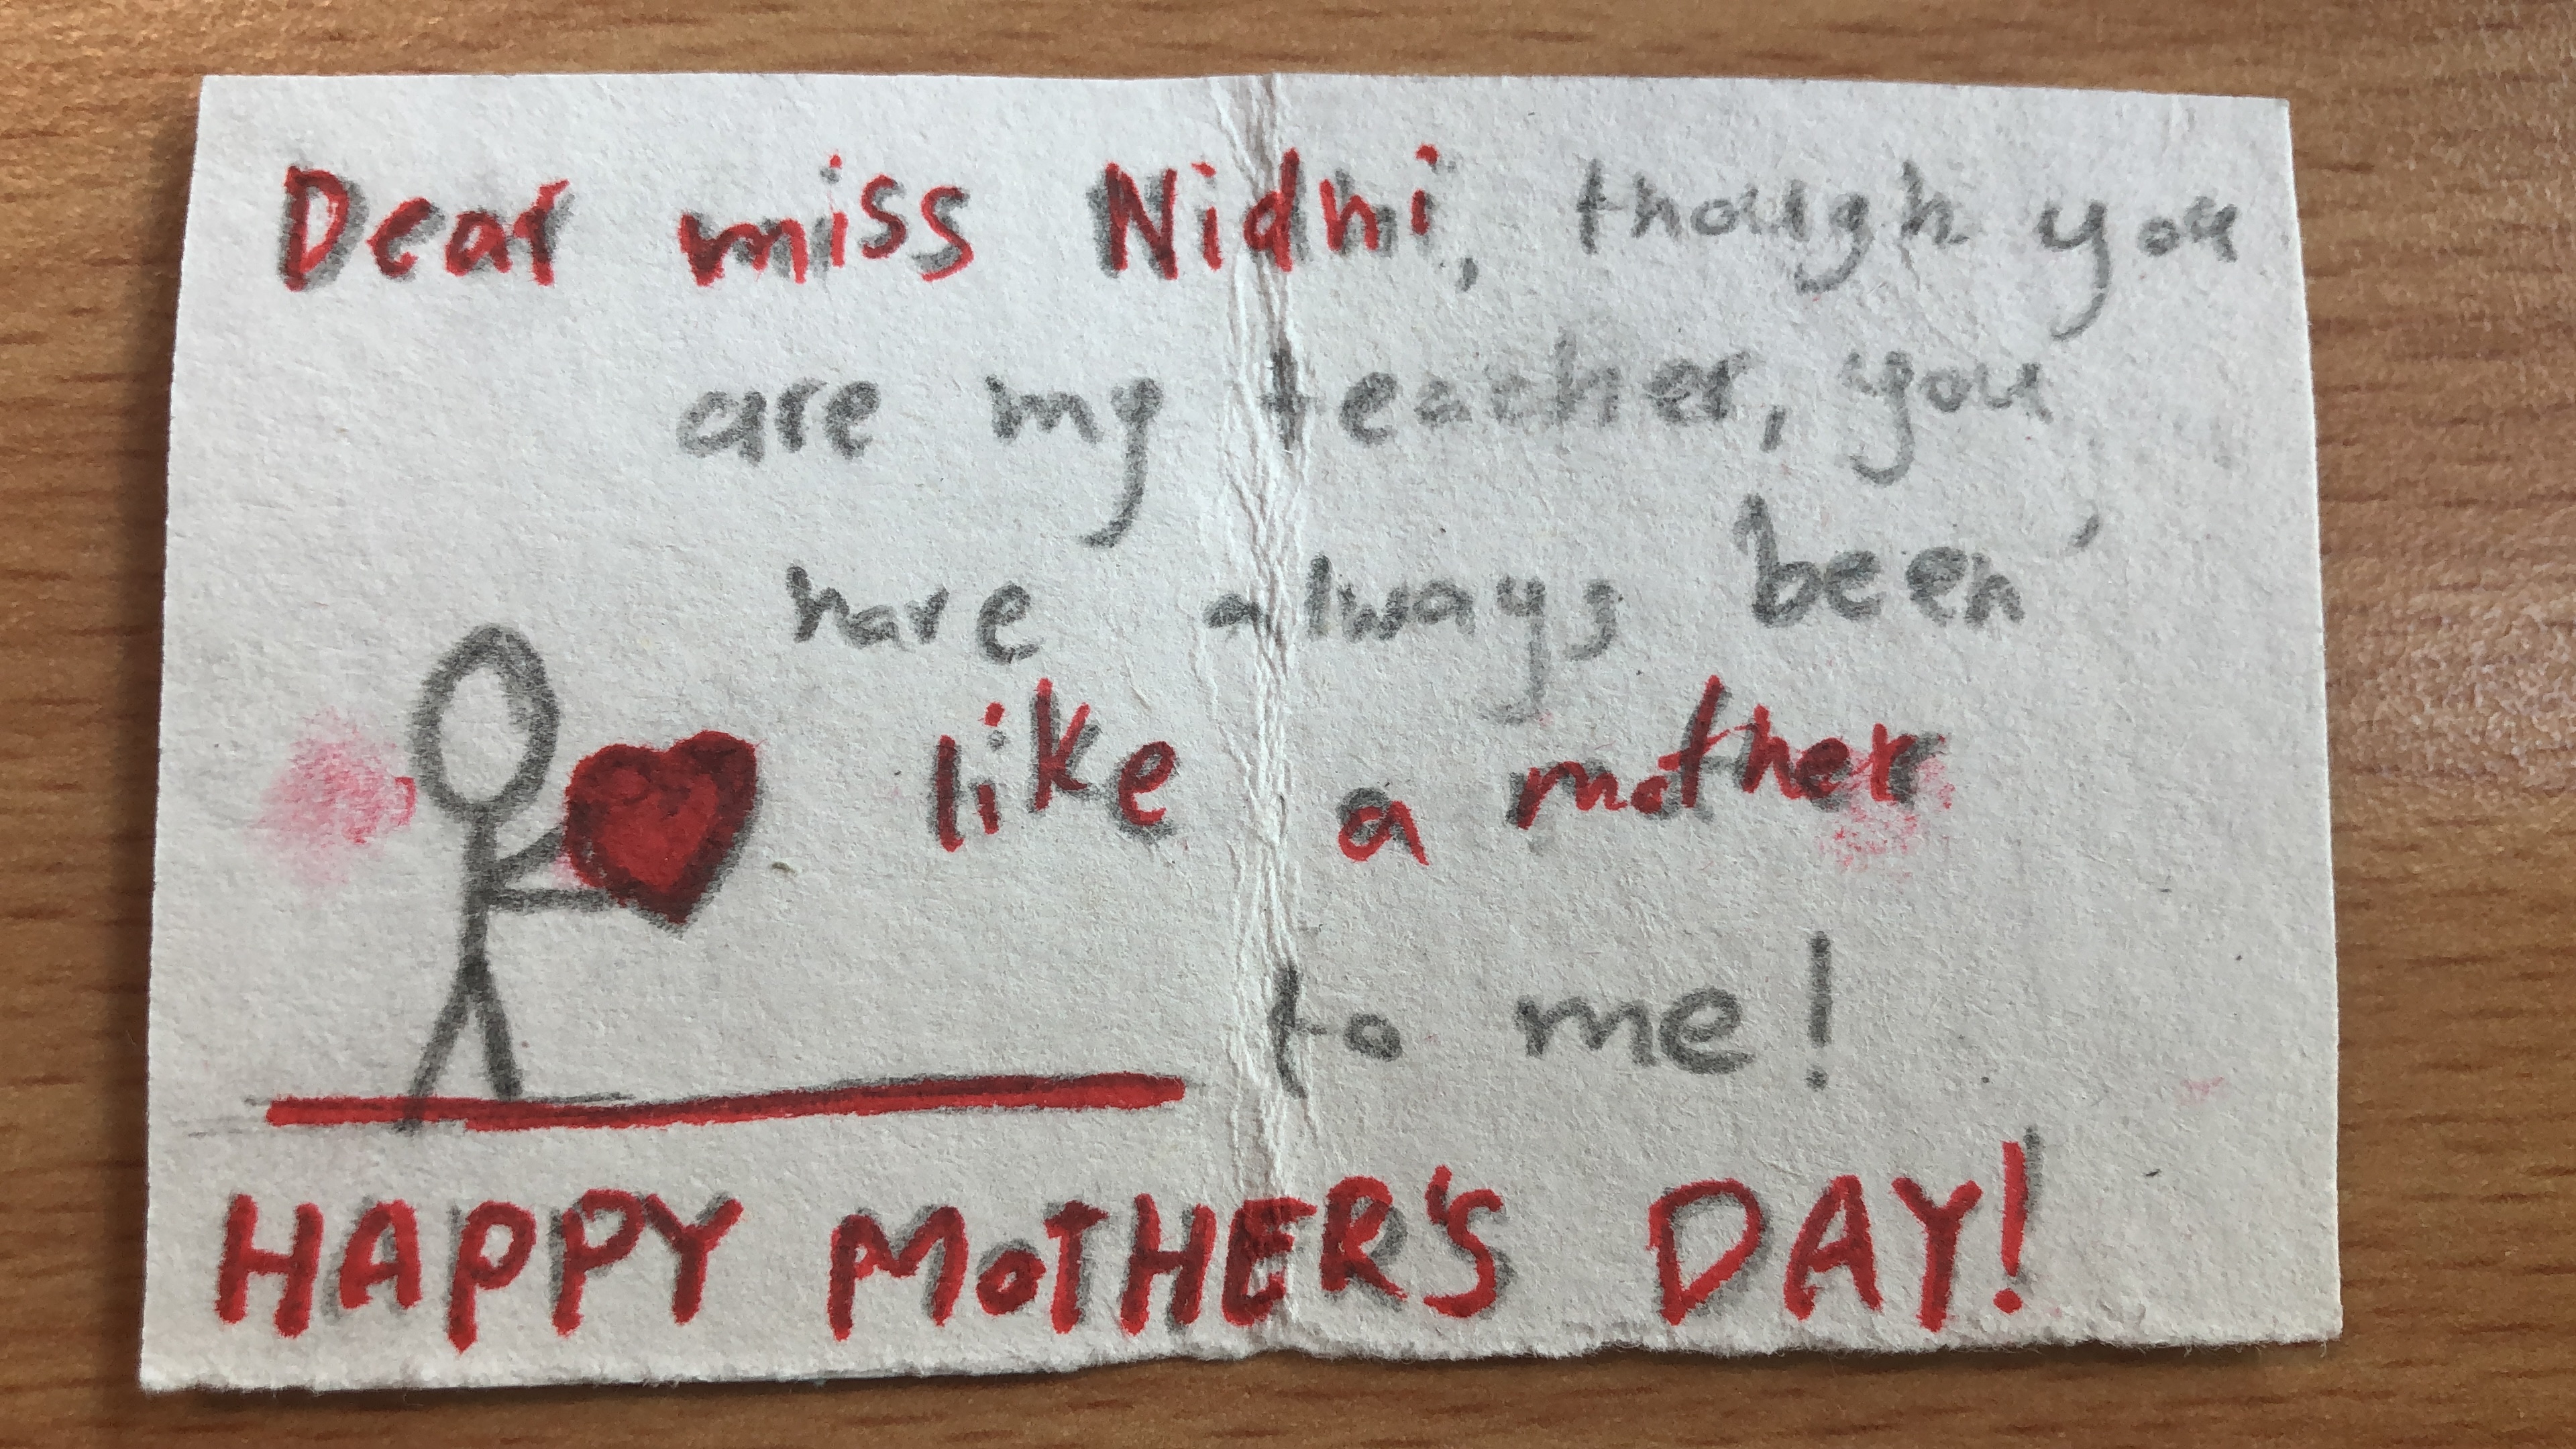 Dear miss Nidhi, though you
are my teacher, you
have always been
like a mother
to me!
HAPPY MOTHER'S DAY!